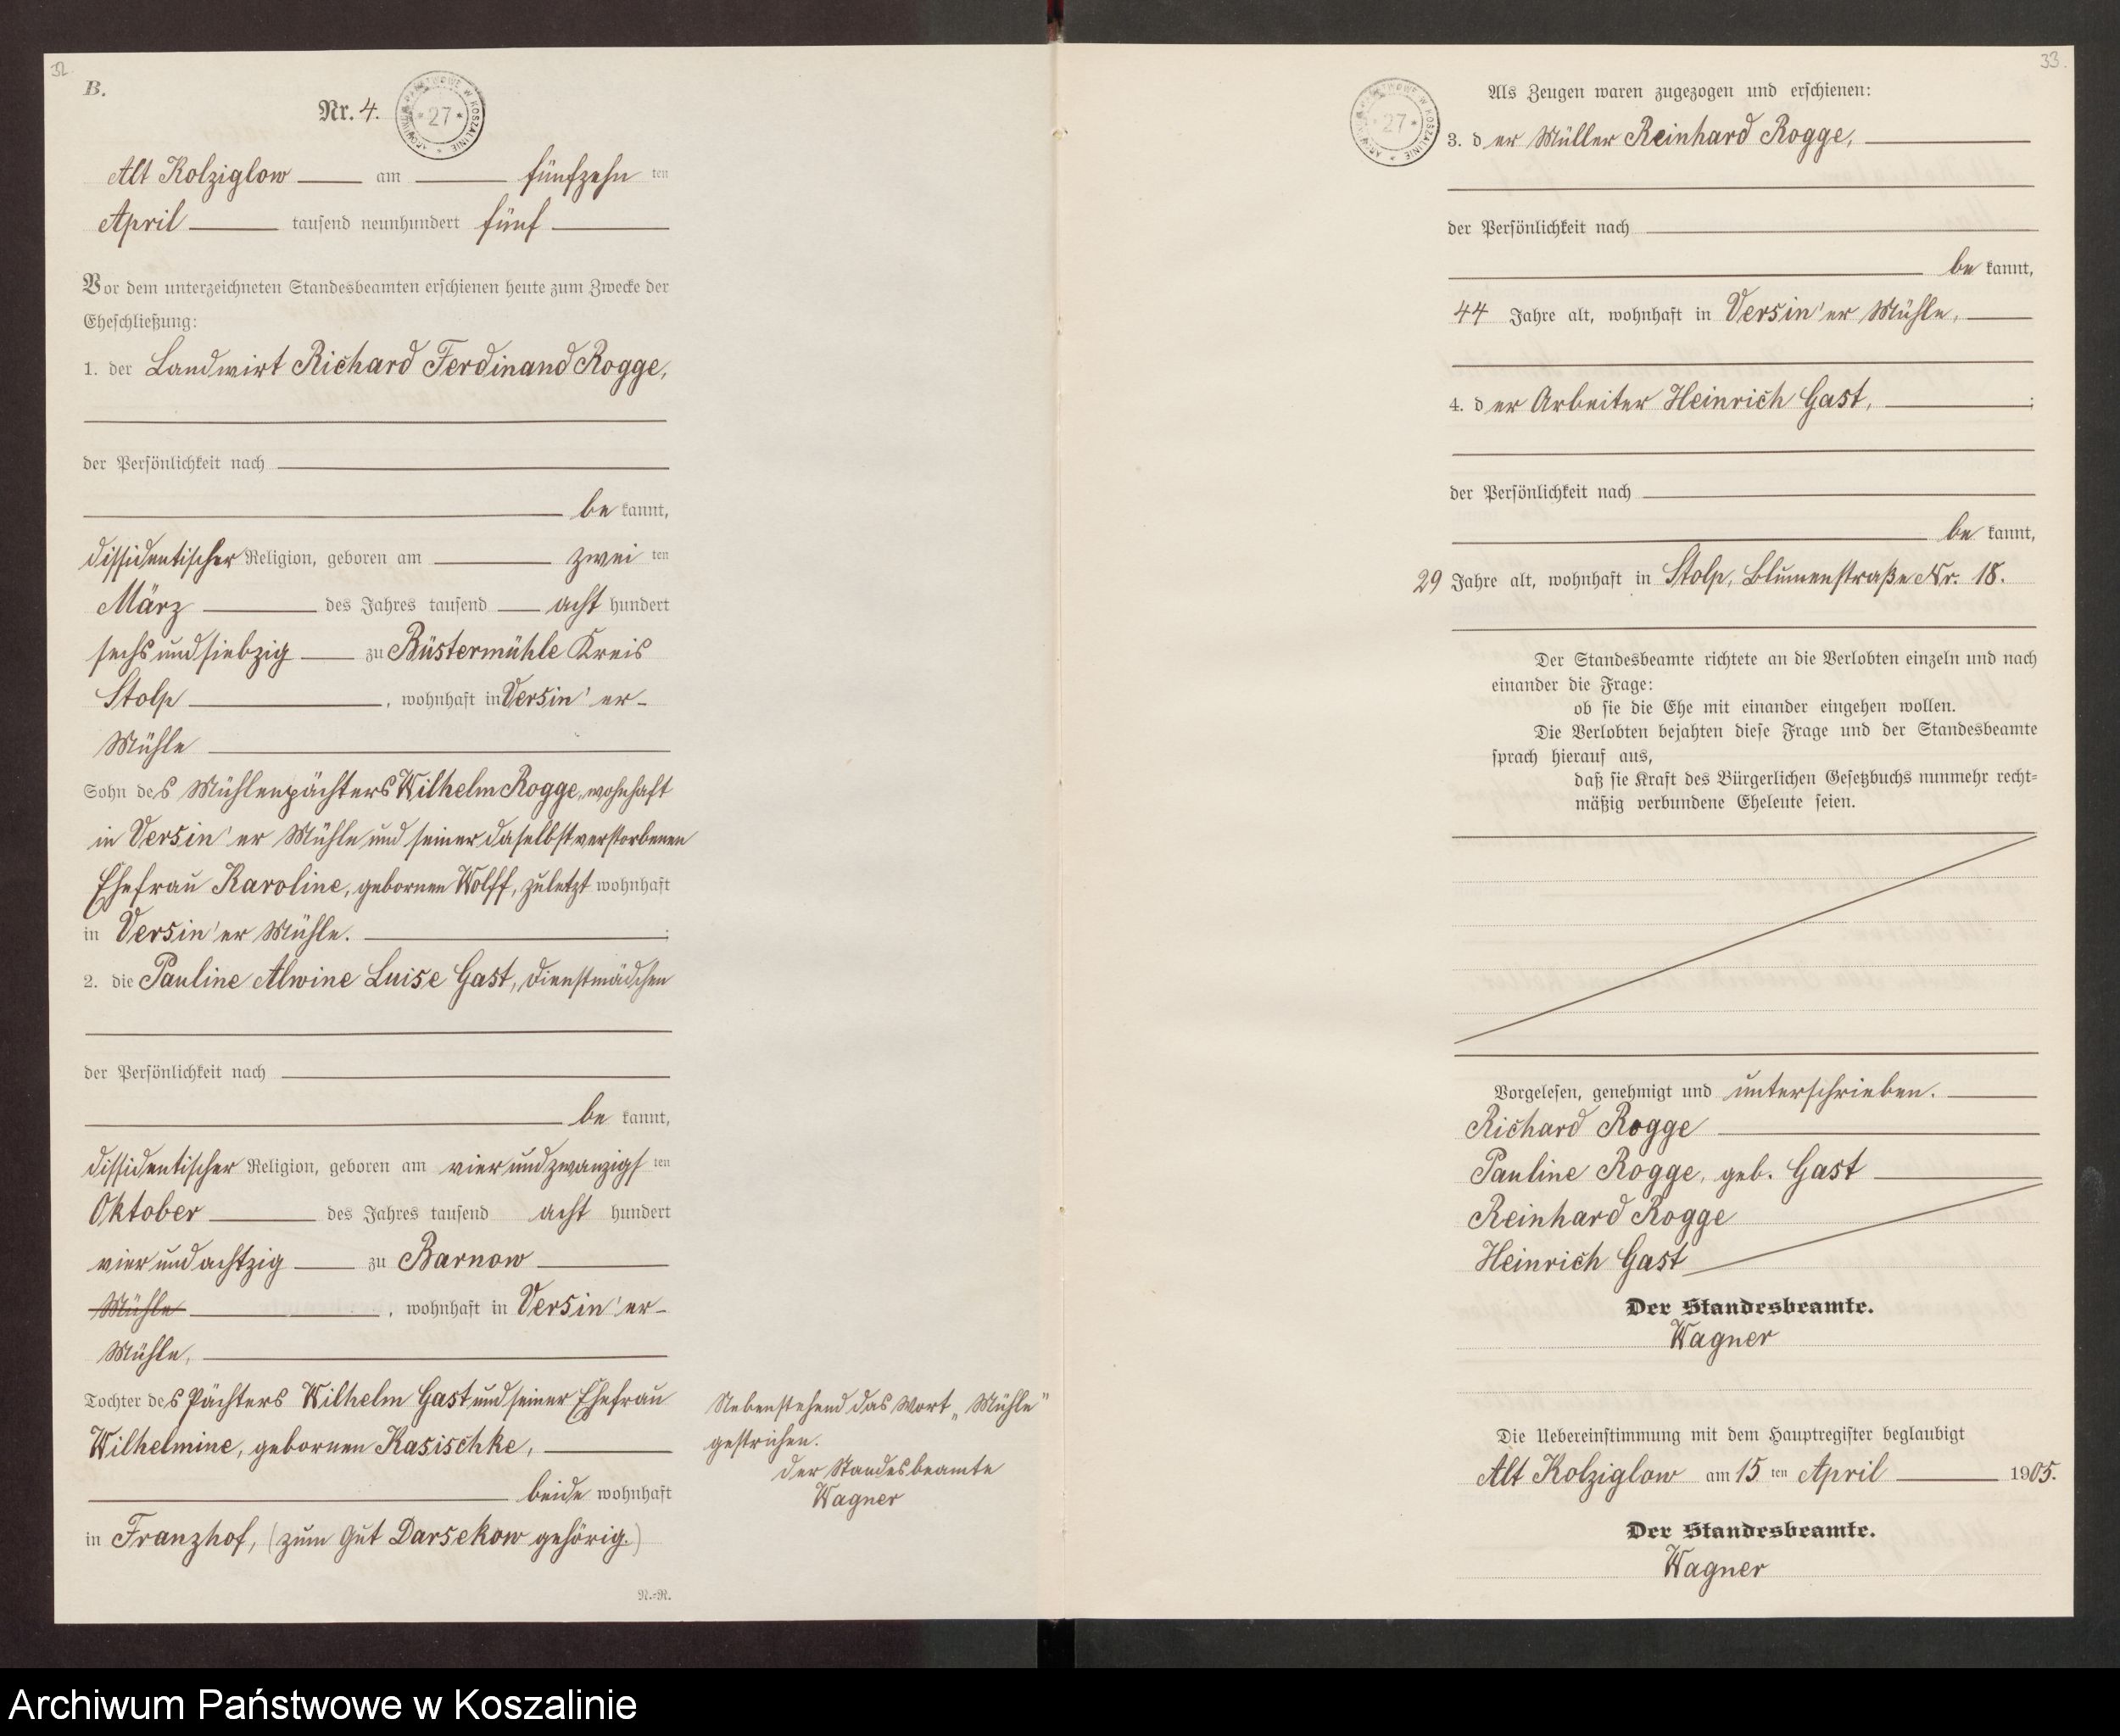 32
B.
Nr. 4.
ARCHIWUM PAŃSTWOWE W KOSZALINIE * 27 *
Alt Kolziglow am fünfzehn ten
April tausend neunhundert fünf
Vor dem unterzeichneten Standesbeamten erschienen heute zum Zwecke der
Eheschließung:
1. der Landwirt Richard Ferdinand Rogge,
der Persönlichkeit nach
be kannt,
dissidentischer Religion, geboren am zwei ten
März des Jahres tausend acht hundert
sechs und siebzig zu Büstermühle Kreis
Stolp , wohnhaft in Versin'er-
Mühle
Sohn des Mühlenpächters Wilhelm Rogge, wohnhaft
in Versin'er Mühle und seiner daselbst verstorbenen
Ehefrau Karoline, gebornen Wolff, zuletzt wohnhaft
in Versin'er Mühle. ;
2. die Pauline Alwine Luise Gast, Dienstmädchen
der Persönlichkeit nach
be kannt,
dissidentischer Religion, geboren am vier und zwanzigs ten
Oktober des Jahres tausend acht hundert
vier und achtzig zu Barnow
Mühle , wohnhaft in Versin'er-
Mühle,
Tochter des Pächters Wilhelm Gast und seiner Ehefrau
Wilhelmine, gebornen Kasischke,
beide wohnhaft
in Franzhof, (zum Gut Darsekow gehörig.)
N.-R.
Nebenstehend das Wort „Mühle"
gestrichen.
Der Standesbeamte
Wagner
33.
ARCHIWUM PAŃSTWOWE W KOSZALINIE * 27 *
Als Zeugen waren zugezogen und erschienen:
3. d er Müller Reinhard Rogge,
der Persönlichkeit nach
be kannt,
44 Jahre alt, wohnhaft in Versin'er Mühle,
4. d er Arbeiter Heinrich Gast, ;
der Persönlichkeit nach
be kannt,
29 Jahre alt, wohnhaft in Stolp, Blumenstraße Nr. 18.
Der Standesbeamte richtete an die Verlobten einzeln und nach
einander die Frage:
ob sie die Ehe mit einander eingehen wollen.
Die Verlobten bejahten diese Frage und der Standesbeamte
sprach hierauf aus,
daß sie Kraft des Bürgerlichen Gesetzbuchs nunmehr recht-
mäßig verbundene Eheleute seien.
Vorgelesen, genehmigt und unterschrieben.
Richard Rogge
Pauline Rogge, geb. Gast
Reinhard Rogge
Heinrich Gast
Der Standesbeamte.
Wagner
Die Uebereinstimmung mit dem Hauptregister beglaubigt
Alt Kolziglow am 15 ten April 1905.
Der Standesbeamte.
Wagner
Archiwum Państwowe w Koszalinie